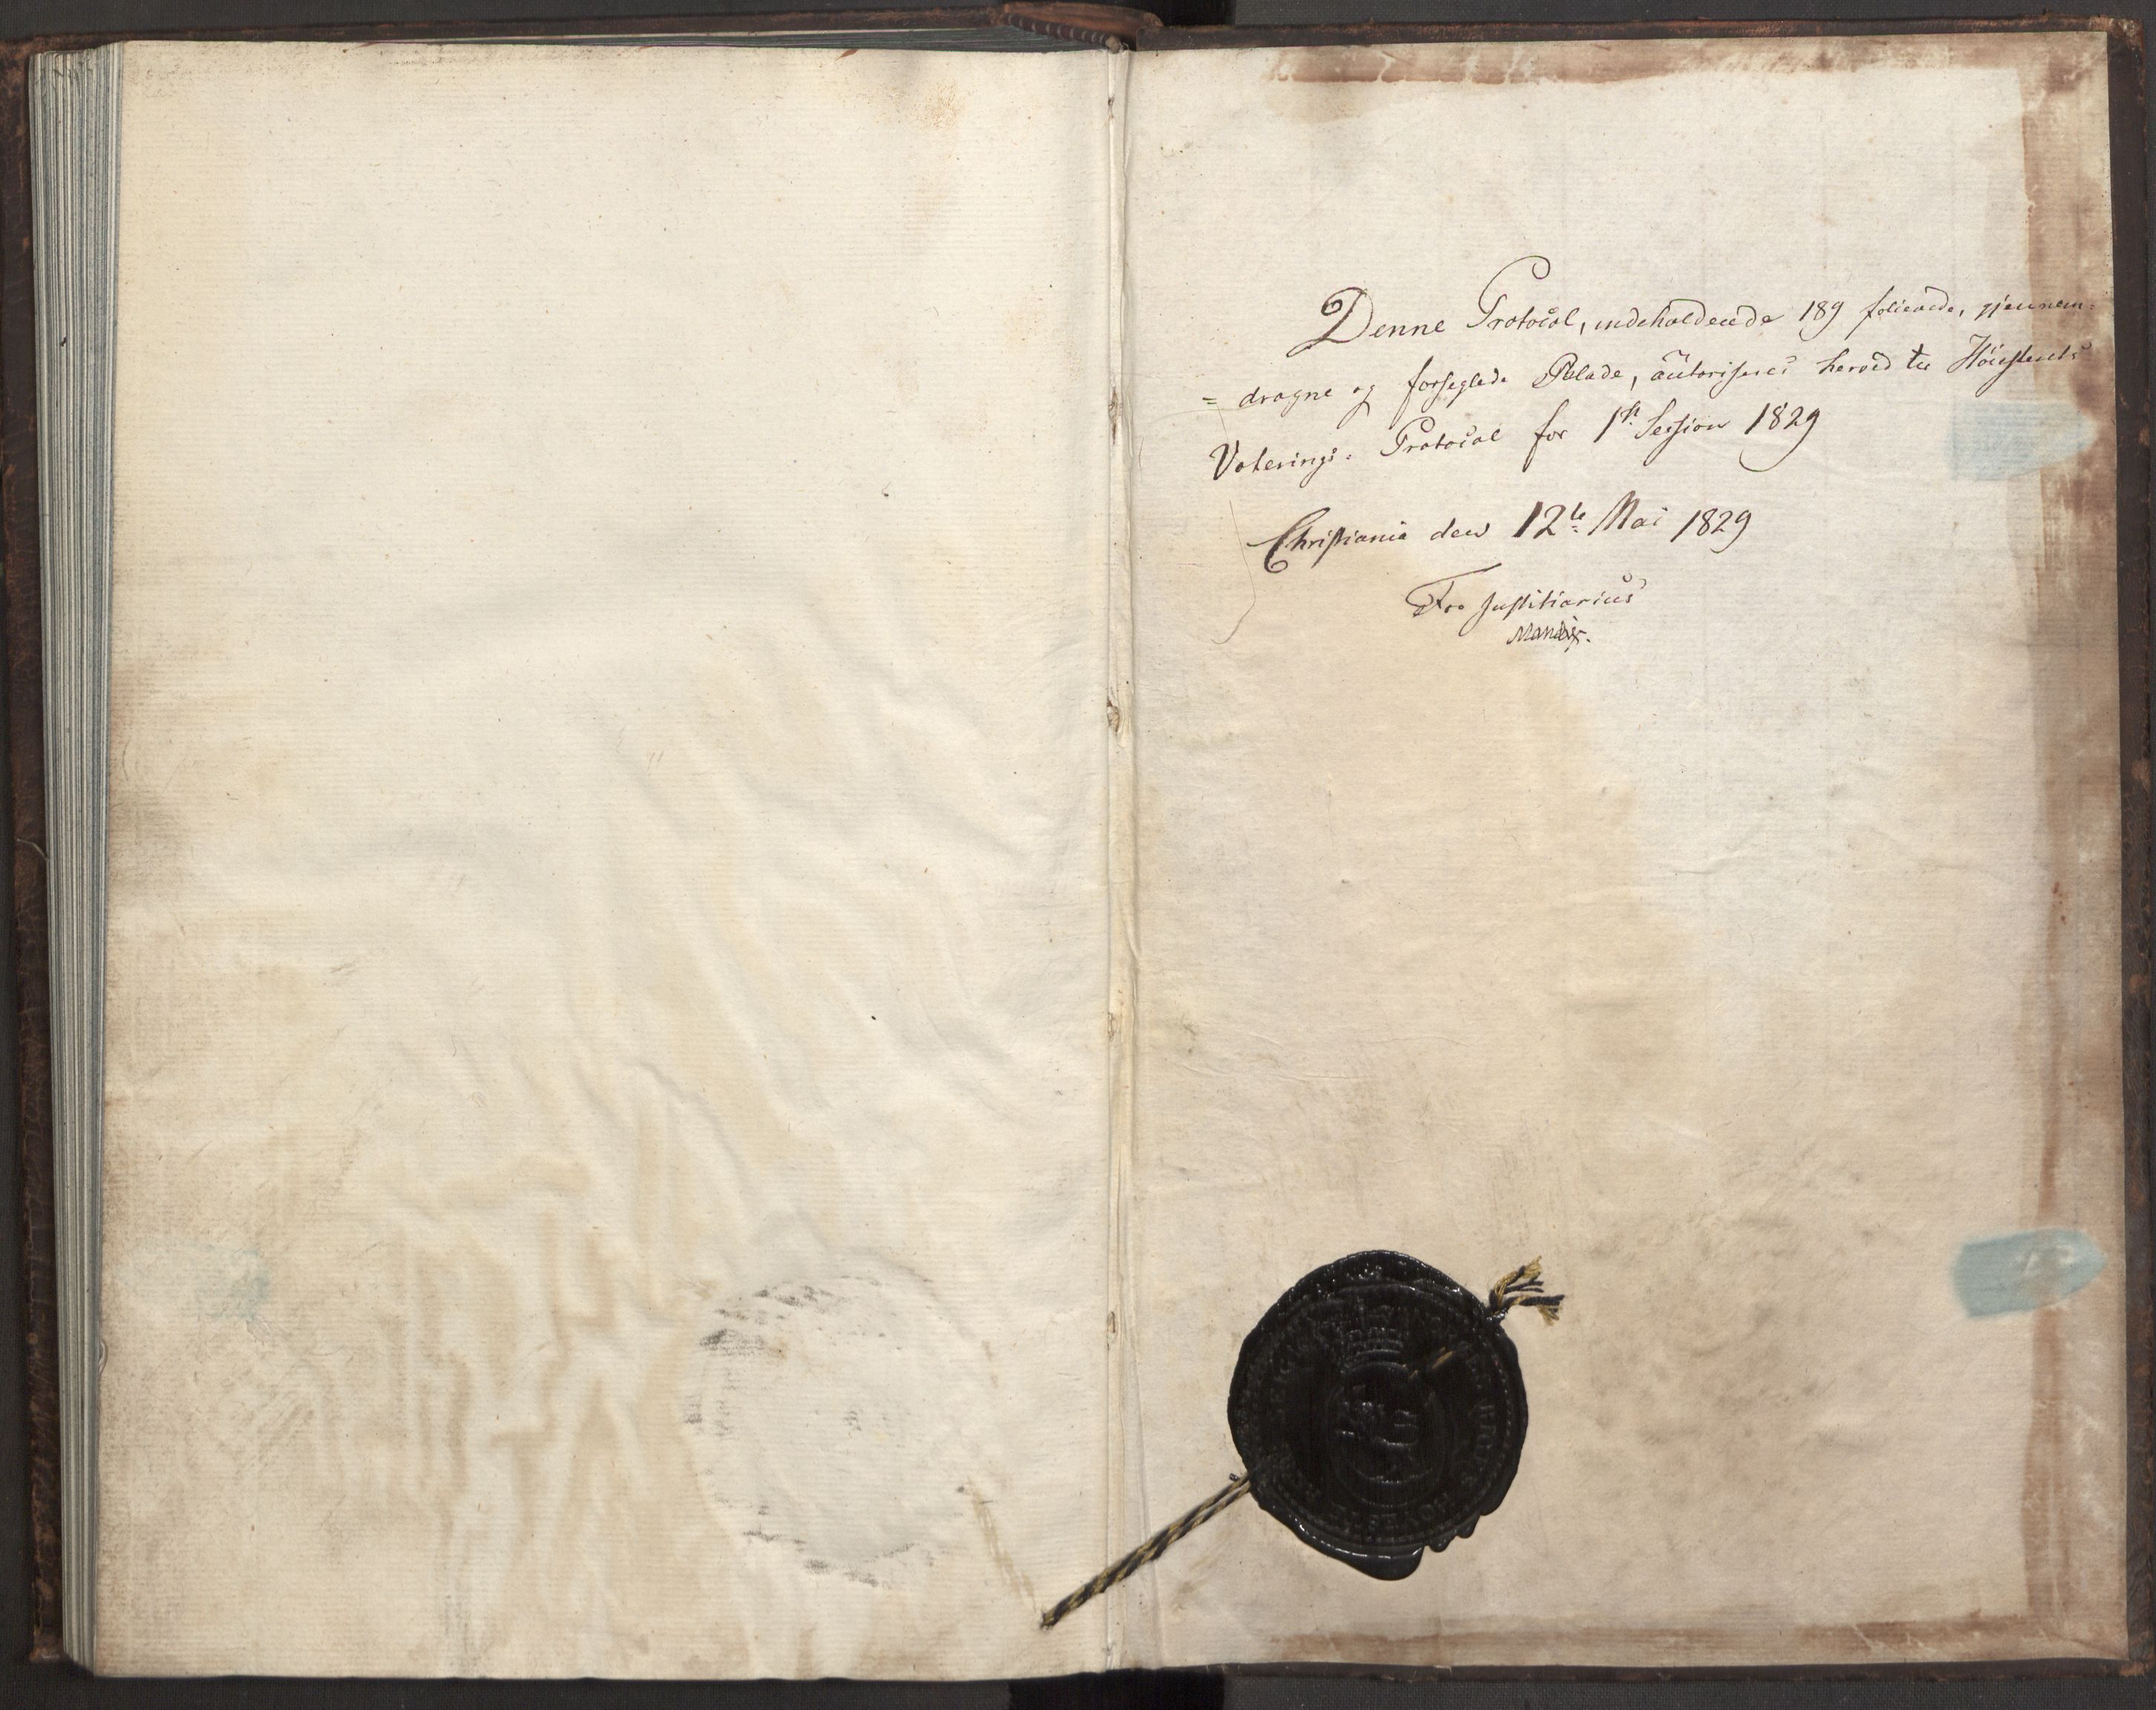 Denne Protocol, indeholdende 189 folierede, gjennem-
= dragne og forseglede Blade, autoriseres herved til Höiesterets
Voterings- Protocol for 1st Session 1829
Christiania den 12te Mai 1829
For Justitiarius